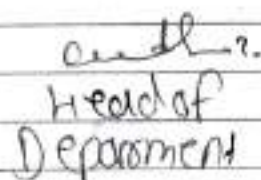 Head of
Deparoment